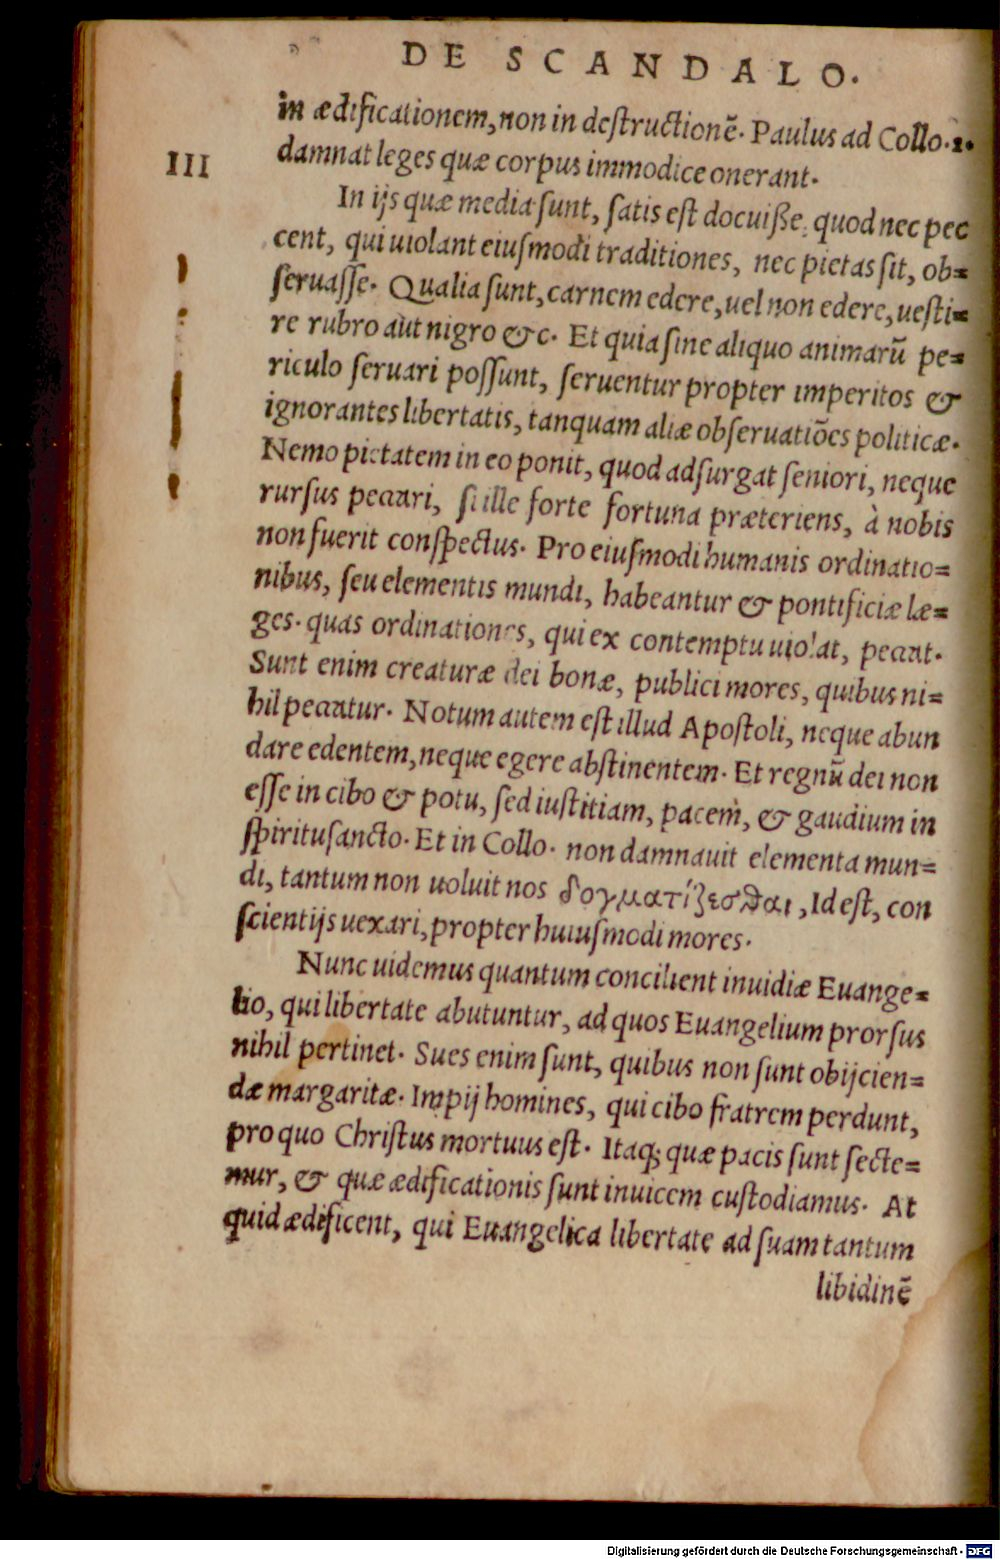 DE SCANDALO.
in ædificationem, non in destructionē. Paulus ad Collo. 2.
damnat leges quæ corpus immodice onerant.
III
In ijs quæ media sunt, satis est docuiße, quod nec pec
cent, qui uiolant eiusmodi traditiones, nec pietas sit, ob=
seruasse. Qualia sunt, carnem edere, uel non edere, uesti=
re rubro aut nigro &c. Et quia sine aliquo animarū pe=
riculo seruari possunt, seruentur propter imperitos &
ignorantes libertatis, tanquam aliæ obseruatiōes politicæ.
Nemo pietatem in eo ponit, quod adsurgat seniori, neque
rursus peccari, si ille forte fortuna præteriens, à nobis
non fuerit conspectus. Pro eiusmodi humanis ordinatio=
nibus, seu elementis mundi, habeantur & pontificiæ le=
ges. quas ordinationes, qui ex contemptu uiolat, peccat.
Sunt enim creaturæ dei bonæ, publici mores, quibus ni=
hil peccatur. Notum autem est illud Apostoli, neque abun
dare edentem, neque egere abstinentem. Et regnū dei non
esse in cibo & potu, sed iustitiam, pacem, & gaudium in
spiritusancto. Et in Collo. non damnauit elementa mun=
di, tantum non uoluit nos δογματίζεσθαι, Id est, con
scientijs uexari, propter huiusmodi mores.
Nunc uidemus quantum concilient inuidiæ Euange=
lio, qui libertate abutuntur, ad quos Euangelium prorsus
nihil pertinet. Sues enim sunt, quibus non sunt obijcien=
dæ margaritæ. Impij homines, qui cibo fratrem perdunt,
pro quo Christus mortuus est. Itaq; quæ pacis sunt secte=
mur, & quæ ædificationis sunt inuicem custodiamus. At
quid ædificent, qui Euangelica libertate ad suam tantum
libidinē
Digitalisierung gefördert durch die Deutsche Forschungsgemeinschaft - DFG